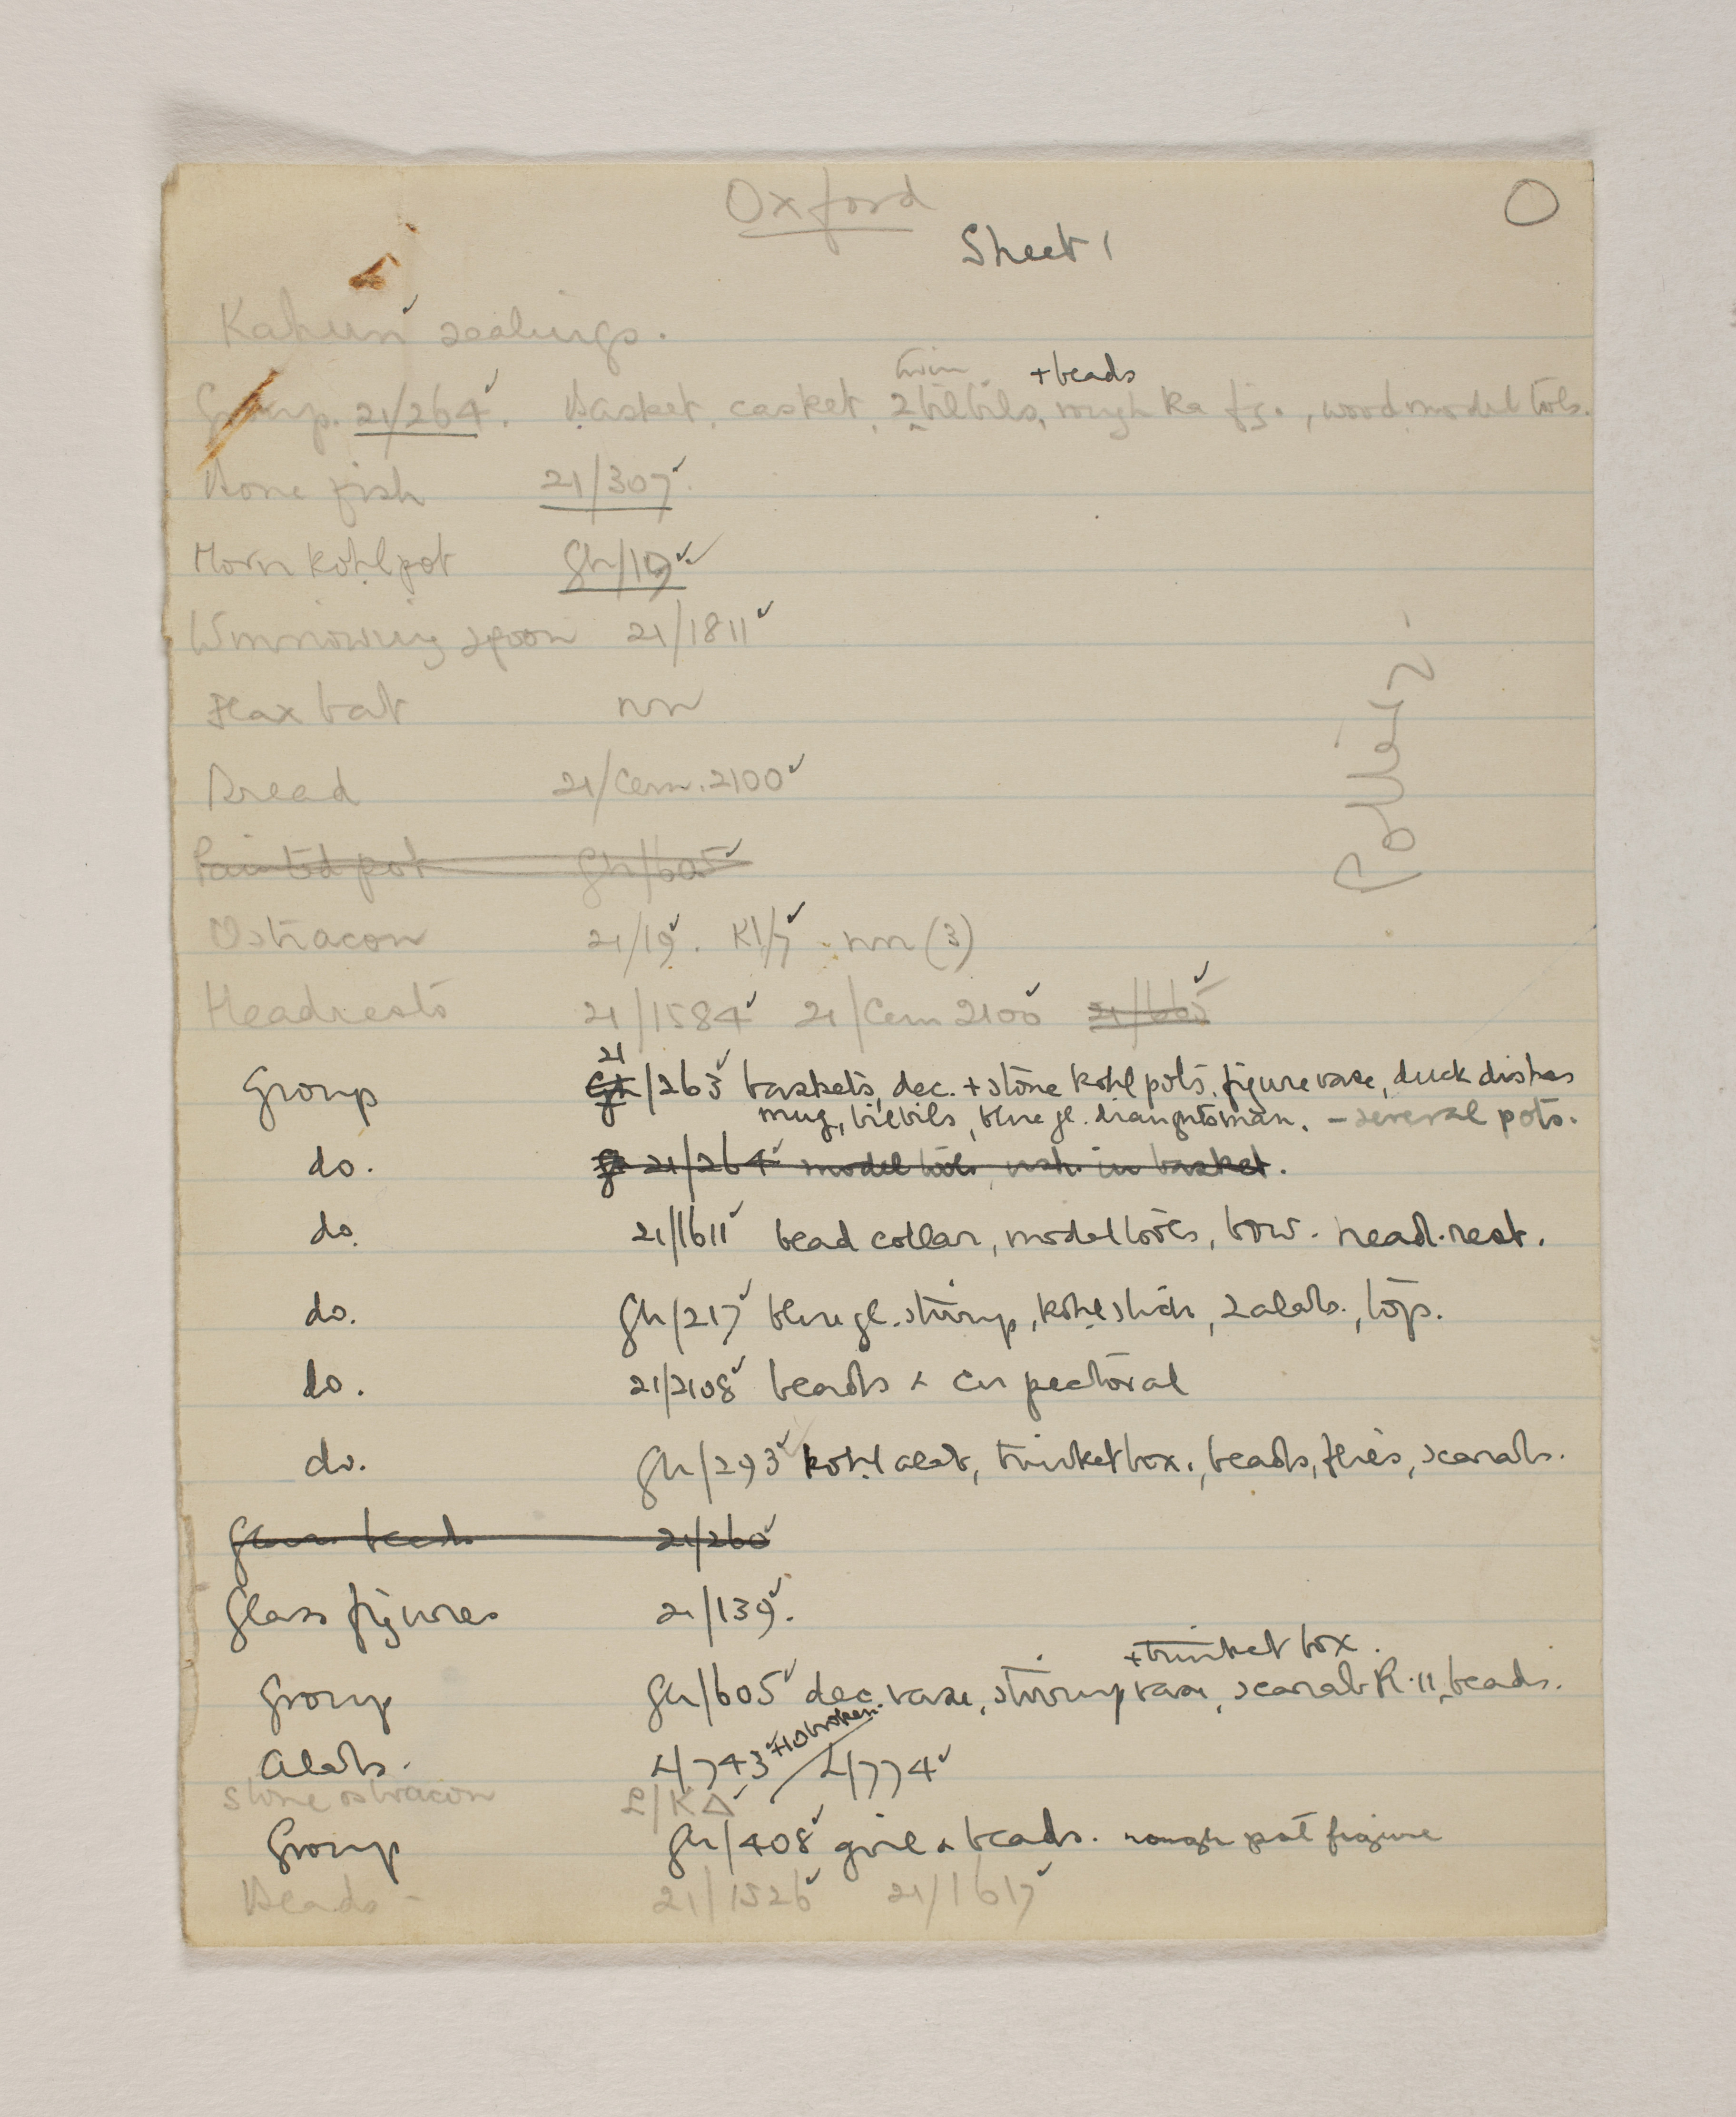 Oxford
O
Sheet 1
Kahun ✓ sealings.
Group. 21/264 ✓. Basket, casket, 2 twin bilbils, + beads rough Ka fig., wood model tools.
Bone fish 21/307 ✓.
Horn kohl pot Gh/19 ✓
Winnowing spoon 21/1811 ✓
Flax bat nn
Bread 21/Cem. 2100 ✓
Painted pot Gh/605 ✓
Ostracon 21/19 ✓. KI/7 ✓. nn (3)
Headrests 21/1584 ✓ 21/Cem 2100 ✓ 21/605 ✓
Group Gh 21/263 ✓ baskets, dec. + stone kohl pots, figure vase, duck dishes
mug, bilbils, blue gl. draughtsman. - several pots.
do. 21/264 ✓ model tools, ush. in basket.
do. 21/1611 ✓ bead collar, model tools, bow. head-rest.
do. Gh/217 ✓ blue gl. stirrup, kohl stick, 2 alabs., top.
do. 21/2108 ✓ beads & cu pectoral
do. Gh/293 ✓ kohl alab, trinket box, beads, flies, scarab.
Glass beads 21/260 ✓
Glass figures 21/139 ✓.
+ trinket box.
Group Gh/605 ✓ dec. vase, stirrup vase, scarab R.11, beads.
Alabs. L/743 ✓ + 10 broken. L/774 ✓
Stone ostracon L/KΔ ✓
Group Gh/408 ✓ girl & beads. rough pot figure
Beads - 21/1526 ✓ 21/1617 ✓